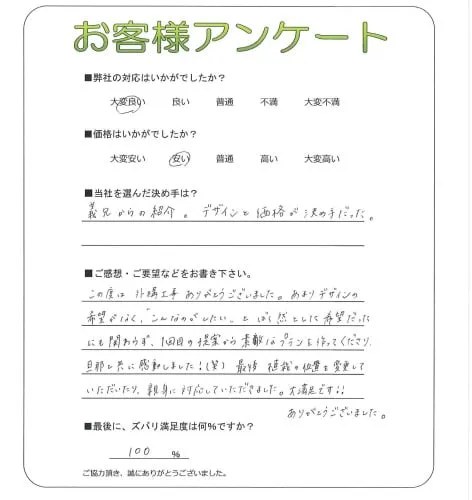 お客様アンケート
■弊社の対応はいかがでしたか？
大変良い 良い 普通 不満 大変不満
■価格はいかがでしたか？
大変安い 安い 普通 高い 大変高い
■当社を選んだ決め手は？
義兄からの紹介。デザインと価格が決め手だった。
■ご感想・ご要望などをお書き下さい。
この度は外構工事ありがとうございました。あまりデザインの
希望がなく、"こんなのがしたい"とぼう然とした希望だった
にも関わらず、1回目の提案から素敵なプランを作ってくださり、
旦那と共に感動しました！(笑) 最終 植栽の位置を変更して
いただいたり、親身に対応していただきました。大満足です!!
ありがとうございました。
■最後に、ズバリ満足度は何％ですか？
100 ％
ご協力頂き、誠にありがとうございました。